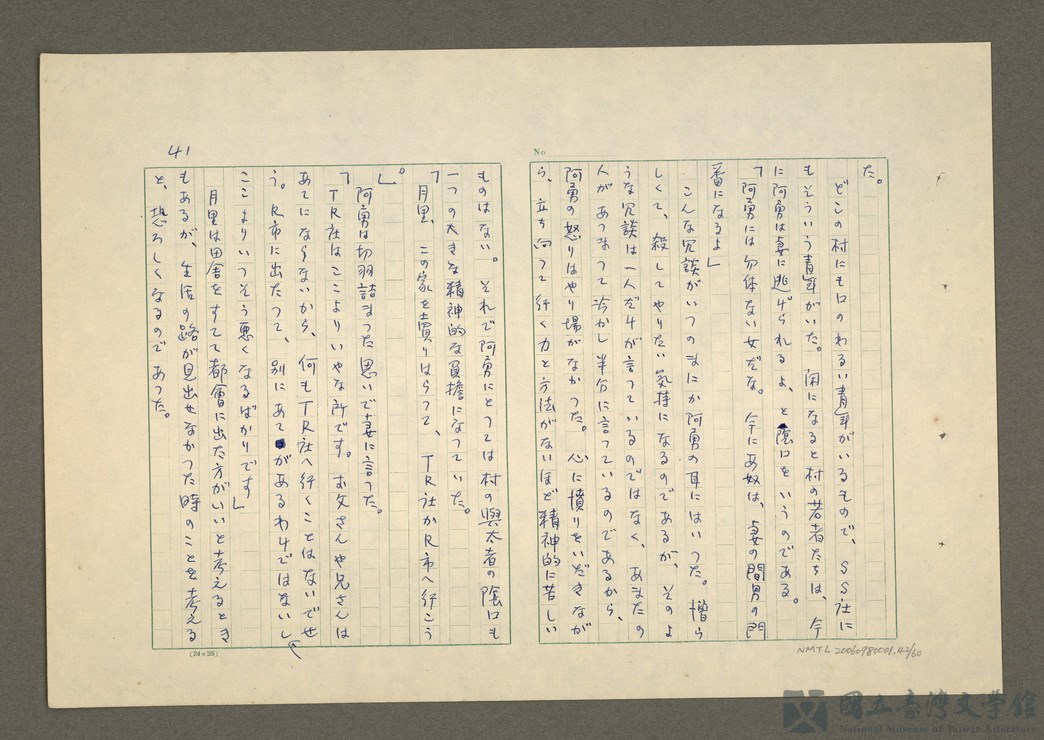 No
た。
どこの村にも口のわるい青年がいるもので、SS社に
もそういう青年がいた。閑になると村の若者たちは、今
に阿勇は妻に逃げられるよ、と陰口をいうのである。
「阿勇には勿体ない女だな。今にあ奴は、妻の間男の門
番になるよ」
こんな冗談がいつのまにか阿勇の耳にはいつた。憎ら
しくて、殺してやりたい気持になるのであるが、そのよ
うな冗談は一人だけが言つているのではなく、あまたの
人があつまつて冷かし半分に言つているのであるから、
阿勇の怒りはやり場がなかつた。心に憤りをいだきなが
ら、立ち向つて行く力と方法がないほど精神的に苦しい
NMTL 20060980001,42/60
41
ものはない。それで阿勇にとつては村の與太者の陰口も
一つの大きな精神的な負擔になつていた。
「月里、この家を賣りはらつて、TR社かR市へ行こう
」。
阿勇は切羽詰まつた思いで妻に言つた。
「TR社はここよりいやな所です。お父さんや兄さんは
あてにならないから、何もTR社へ行くことはないでせ
う。R市に出たつて、別にあてがあるわけではないし
ここよりいつそう悪くなるばかりです」
月里は田舎をすてて都會に出た方がいいと考えるとき
もあるが、生活の路が見出せなかつた時のことを考える
と、恐ろしくなるのであつた。
(24×25)
國立臺灣文學館
National Museum of Taiwan Literature